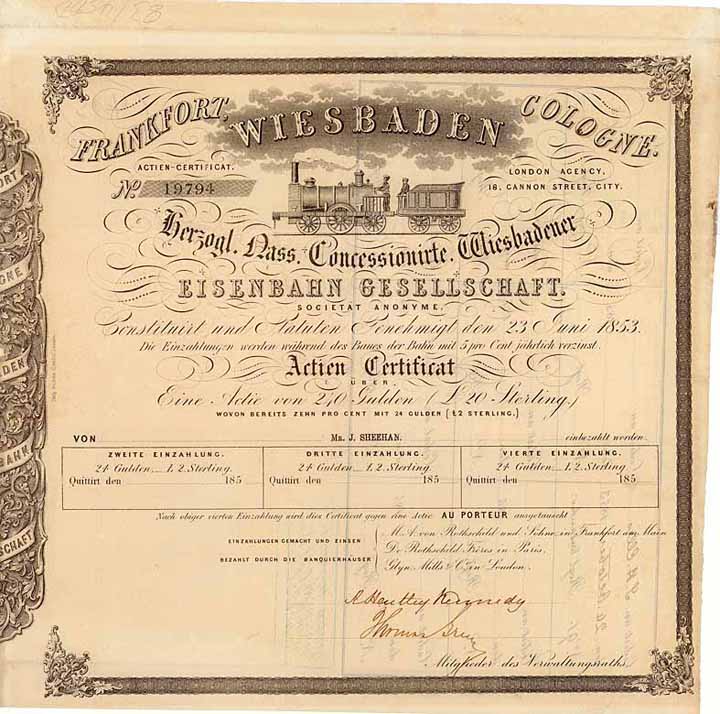 FRANKFORT. WIESBADEN COLOGNE.
ACTIEN-CERTIFICAT.
No. 19794
LONDON AGENCY,
18, CANNON STREET, CITY.
Herzogl. Nass. Concessionirte. Wiesbadener
EISENBAHN GESELLSCHAFT.
SOCIETAT ANONYME,
Constituirt und Statuten Genehmigt den 23 Juni 1853.
Die Einzahlungen werden während des Baues der Bahn mit 5 pro Cent jährlich verzinst.
Actien Certificat
ÜBER
Eine Actie von 240 Gulden (£20 Sterling.)
WOVON BEREITS ZEHN PRO CENT MIT 24 GULDEN (£2 STERLING.)
VON MR. J. SHEEHAN. einbezahlt worden.
ZWEITE EINZAHLUNG. DRITTE EINZAHLUNG. VIERTE EINZAHLUNG.
24 Gulden__£.2. Sterling. 24 Gulden__£.2. Sterling. 24 Gulden__£.2. Sterling.
Quittirt den 185 Quittirt den 185 Quittirt den 185
Nach obiger vierten Einzahlung wird dies Certificat gegen eine Actie AU PORTEUR ausgetauscht
EINZAHLUNGEN GEMACHT UND ZINSEN
BEZAHLT DURCH DIE BANQUIERHÄUSER
M. A. von Rothschild und Sohne, in Frankfurt am Main
De Rothschild Frères in Paris.
Glyn Mills & Co. in London.
Kennedy
Thomas
Mitglieder des Verwaltungsraths.